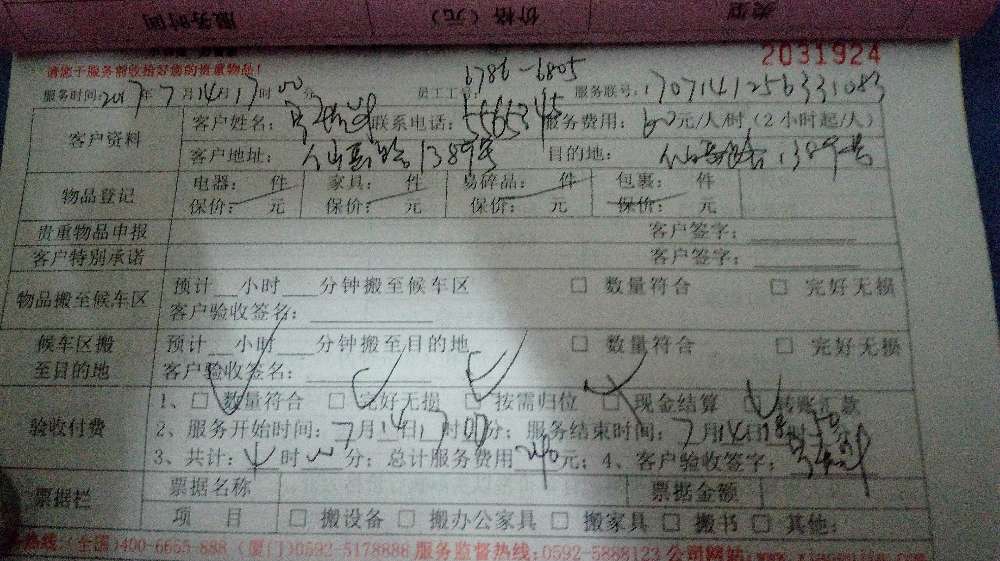 服务时间 价格（元） 类型
2031924
请您于服务前收拾好您的贵重物品！
6786-6805
服务时间：2017年7月14日17时00分 员工工号： 服务联号：1707141256331083
客户资料 客户姓名： 联系电话：5565345 服务费用：60元/人/时（2小时起/人）
客户地址：仙岳路1389号 目的地：仙岳路1389号
物品登记 电器： 件 家具： 件 易碎品： 件 包裹： 件
保价： 元 保价： 元 保价： 元 保价： 元
贵重物品申报 客户签字：
客户特别承诺 客户签字：
物品搬至候车区 预计__小时___分钟搬至候车区 □ 数量符合 □ 完好无损
客户验收签名：
候车区搬至目的地 预计__小时___分钟搬至目的地 □ 数量符合 □ 完好无损
客户验收签名：
验收付费 1、□ 数量符合 □ 完好无损 □ 按需归位 □ 现金结算 □ 转账汇款
2、服务开始时间：7月14日17时00分；服务结束时间：7月14日18时50
3、共计：4时00分；总计服务费用240元；4、客户验收签字：
票据栏 票据名称 票据金额
项 目 □ 搬设备 □ 搬办公家具 □ 搬家具 □ 搬书 □ 其他：
热线：（全国）400-6655-888 （厦门）0592-5178888 服务监督热线：0592-5888123 公司网站：